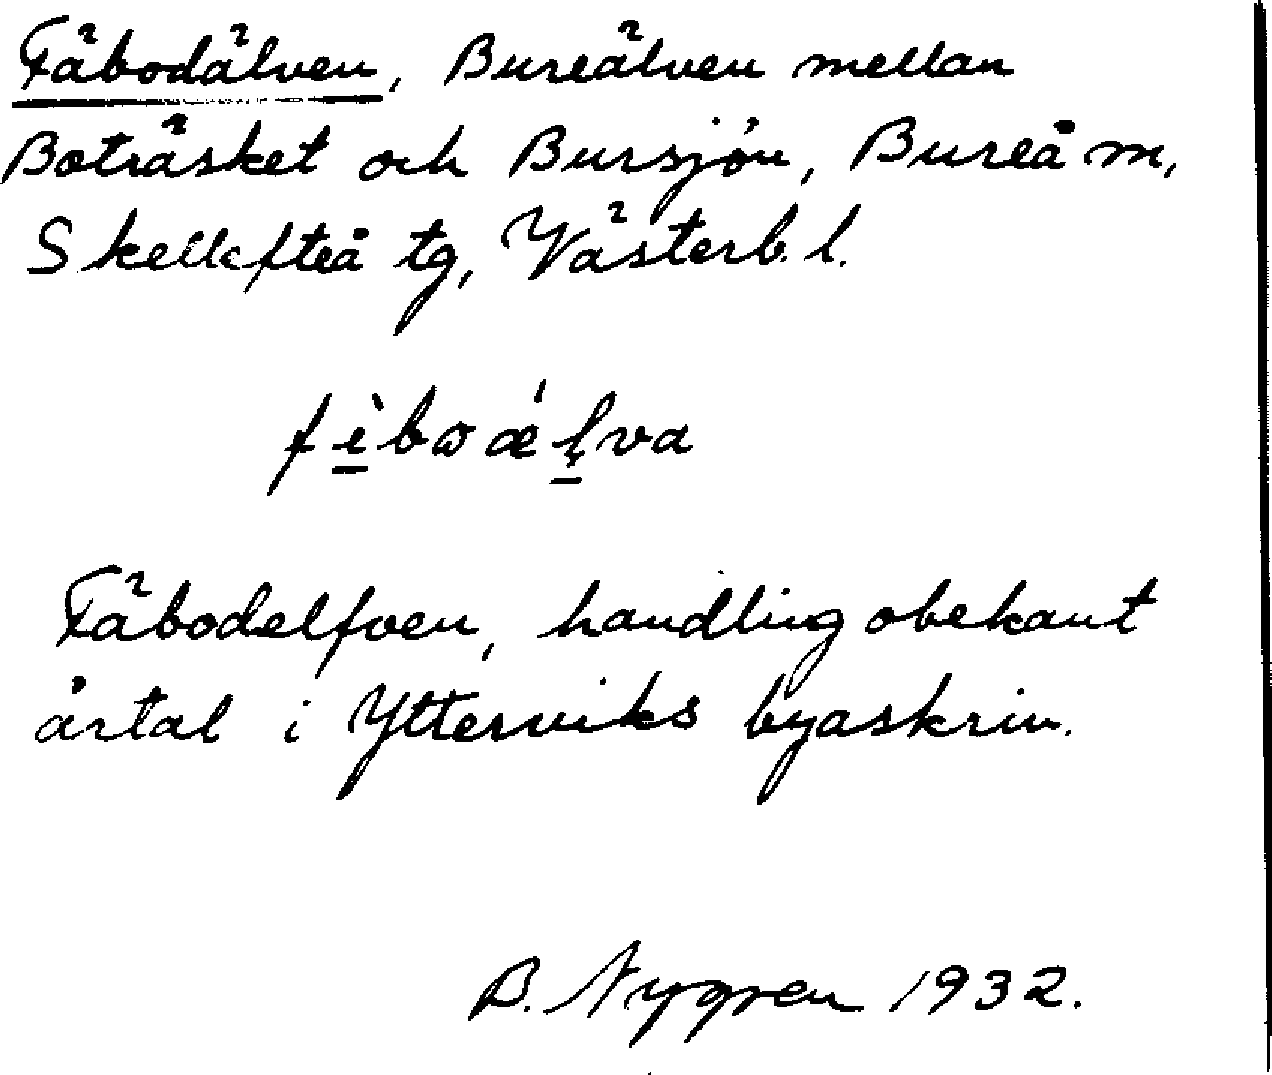 Fäbodälven, Bureälven mellan
Boträsket och Bursjön, Bureå m,
Skellefteå tg, Västerb. l.
fìboǽl̥va
Fäbodelfven, handling obekant
årtal i Ytterviks byaskrin.
B. Nygren 1932.